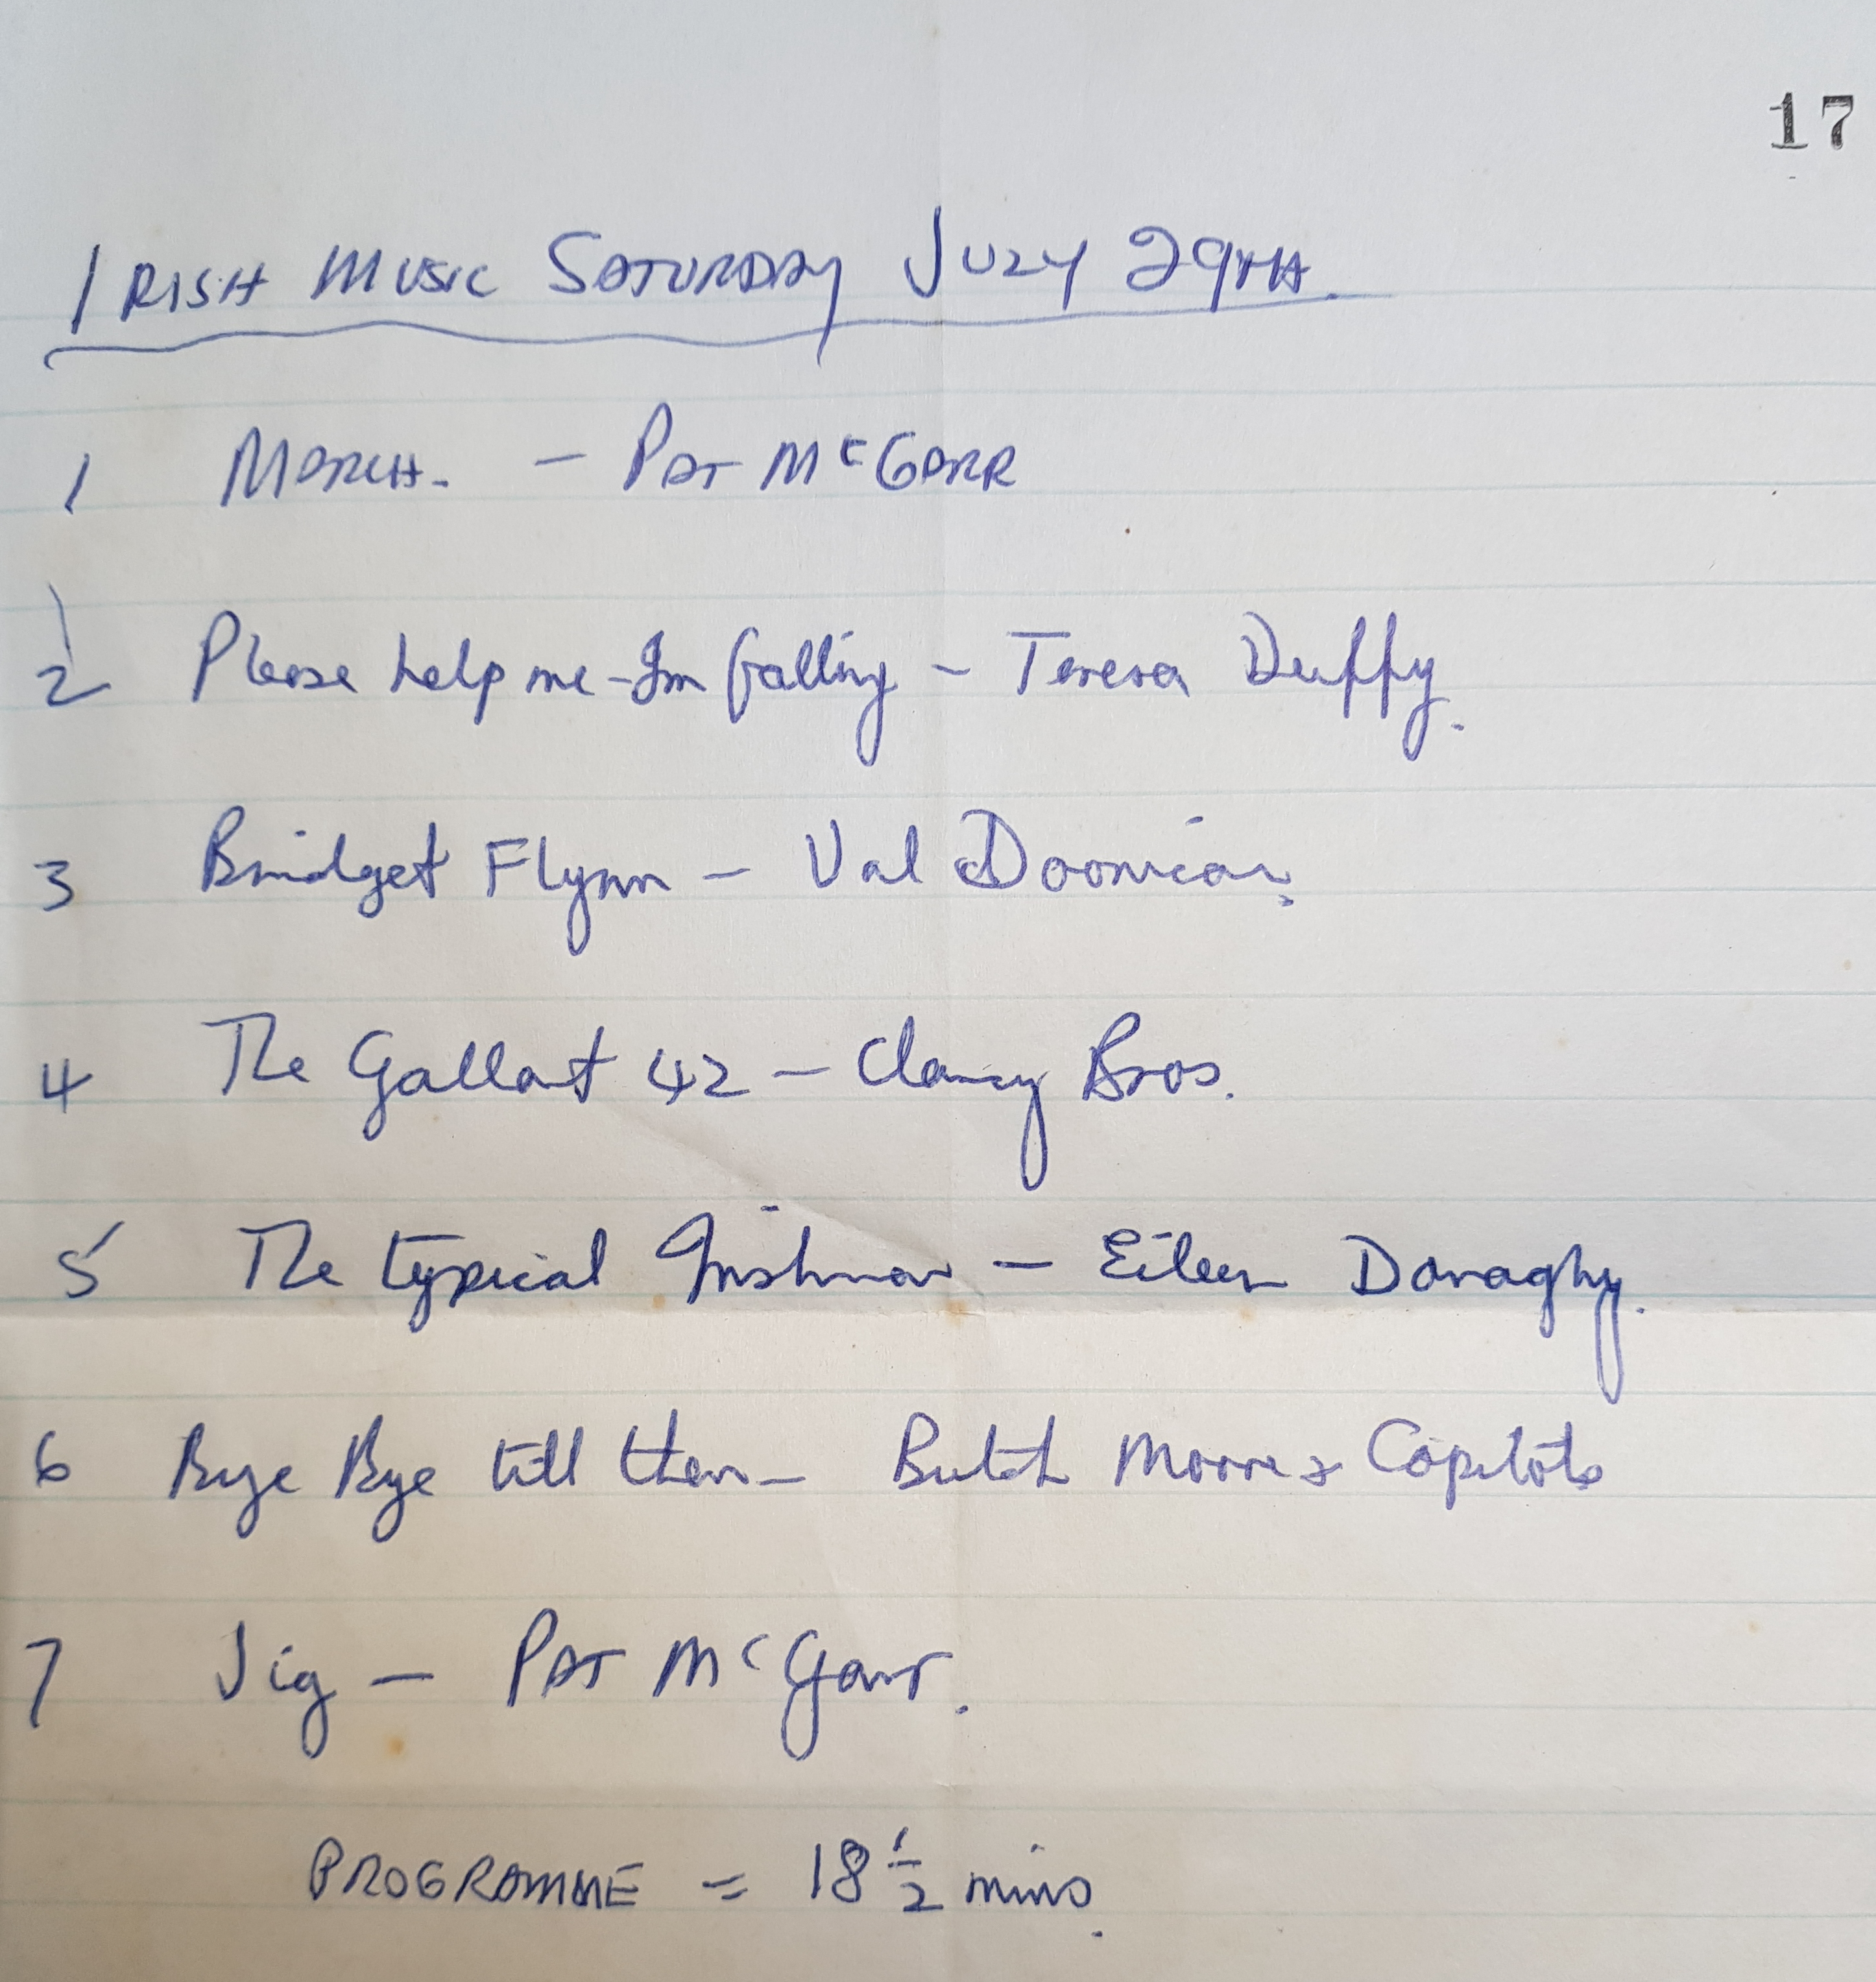 17
IRISH MUSIC SATURDAY JULY 29TH.
1 MARCH. - PAT McGARR
2 Please help me - Im falling - Teresa Duffy.
3 Bridget Flynn - Val Doonican.
4 The Gallant 42 - Clancy Bros.
5 The typical Irishman - Eileen Donaghy.
6 Bye Bye till then - Butch Moore & Capitols
7 Jig - PAT McGarr.
PROGRAMME = 18 1/2 mins.